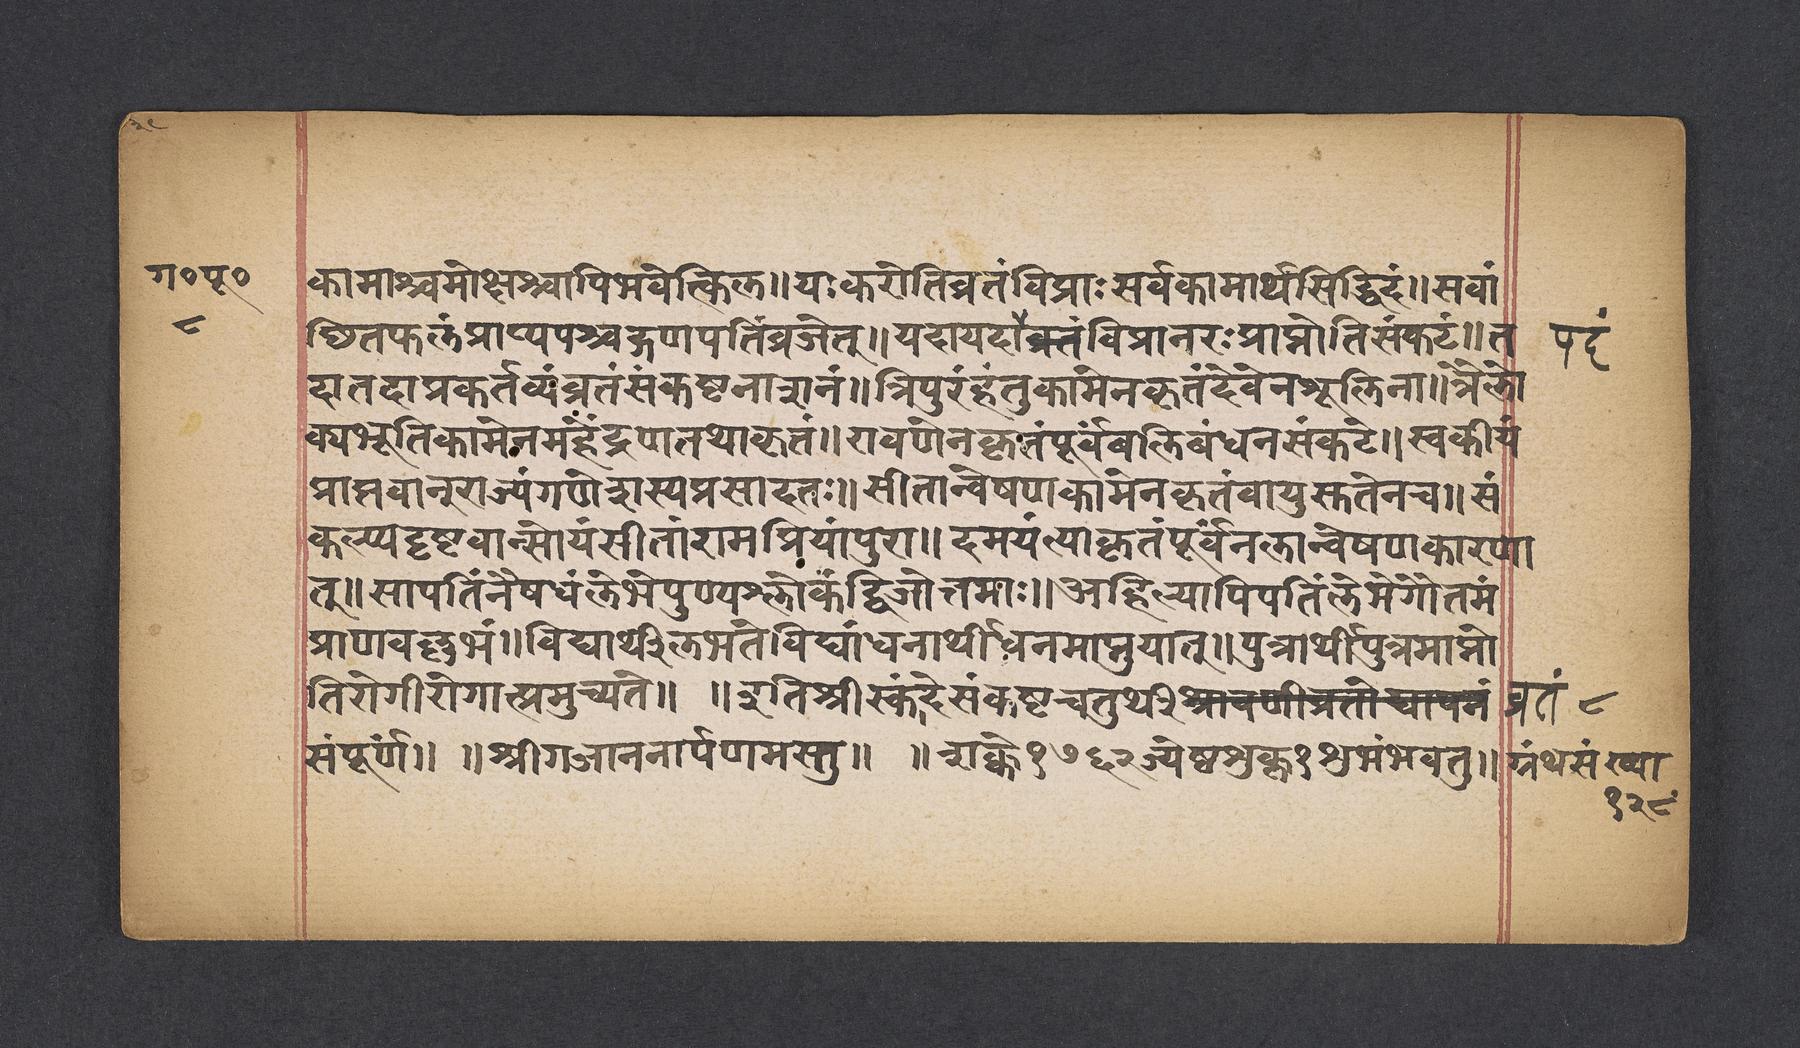 ग०पू०
८
कामाश्चमोक्षश्चापिभवेत्किल॥यःकरोतिव्रतंविप्राःसर्वकामार्थसिद्धिदं॥सवां
छितफलंप्राप्यपश्चाद्गणपतिंव्रजेत्॥यदायदाव्रतंविप्रानरःप्राप्नोतिसंकटं॥त
षदं
दातदाप्रकर्तव्यंव्रतंसंकष्टनाशनं॥त्रिपुरंहंतुकामेनकृतंदेवेनशूलिना॥त्रैलो
क्यभूतिकामेनमहेंद्रेणतथाकृतं॥रावणेनकृतंपूर्वंवालिबंधनसंकटे॥स्वकीयं
प्राप्तवान्राज्यंगणेशस्यप्रसादतः॥सीतान्वेषणकामेनकृतंवायुसुतेनच॥सं
कल्प्यदृष्टवान्सोयंसीतांरामप्रियांपुरा॥दमयंत्याकृतंपूर्वंनलान्वेषणकारणा
त्॥सापतिंनैषधंलेभेपुण्यश्लोकंद्विजोत्तमाः॥अहिल्यापिपतिंलेभेगौतमं
प्राणवल्लभं॥विद्यार्थीलभतेविद्यांधनार्थीधनमाप्नुयात्॥पुत्रार्थीपुत्रमाप्नो
तिरोगीरोगात्प्रमुच्यते॥ ॥इतिश्रीस्कंदेसंकष्टचतुर्थीश्रावणीव्रतोद्यापनं व्रतं ८
संपूर्णं॥ ॥श्रीगजाननार्पणमस्तु॥ ॥शके१७६२ज्येष्ठशुक्ल१शुभंभवतु॥ग्रंथसंख्या
१२८